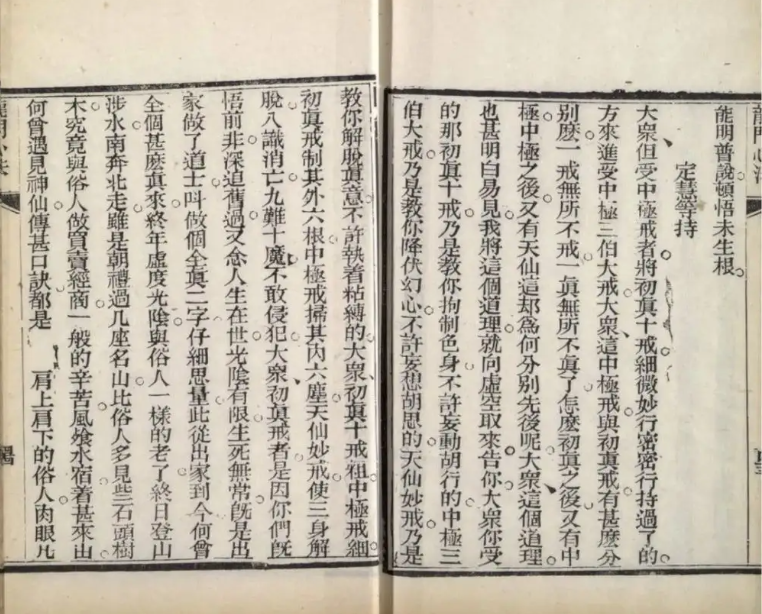 龍門心法
能明普說頓悟未生根
定慧等持
大衆但受中極戒者將初眞十戒細微妙行密密行持過了的
方來進受中極三伯大戒大衆這中極戒與初眞戒有甚麽分
別麽一戒無所不戒一眞無所不眞了怎麽初眞之後又有中
極中極之後又有天仙這却爲何分别先後呢大衆這個道理
也甚明白易見我將這個道理就向虛空取來告你大衆你受
的那初眞十戒乃是教你拘制色身不許妄動胡行的中極三
伯大戒乃是教你降伏幻心不許妄想胡思的天仙妙戒乃是
教你解脫眞意不許執着粘縛的大衆初眞十戒粗中極戒細
初眞戒制其外六根中極戒掃其内六塵天仙妙戒使三身解
脫八識消亡九難十魔不敢侵犯大衆初眞戒者是因你們旣
悟前非深追舊過又念人生在世光陰有限生死無常旣是出
家做了道士呌做個全眞二字仔細思量此從出家到今何曾
全個甚麽眞來終年虛度光陰與俗人一樣的老了終日登山
涉水南奔北走雖是朝禮過几座名山比俗人多見些石頭樹
木究竟與俗人做買賣經商一般的辛苦風飡水宿着甚來由
何曾遇見神仙傳甚口訣都是 肩上肩下的俗人肉眼凡
龍門心法